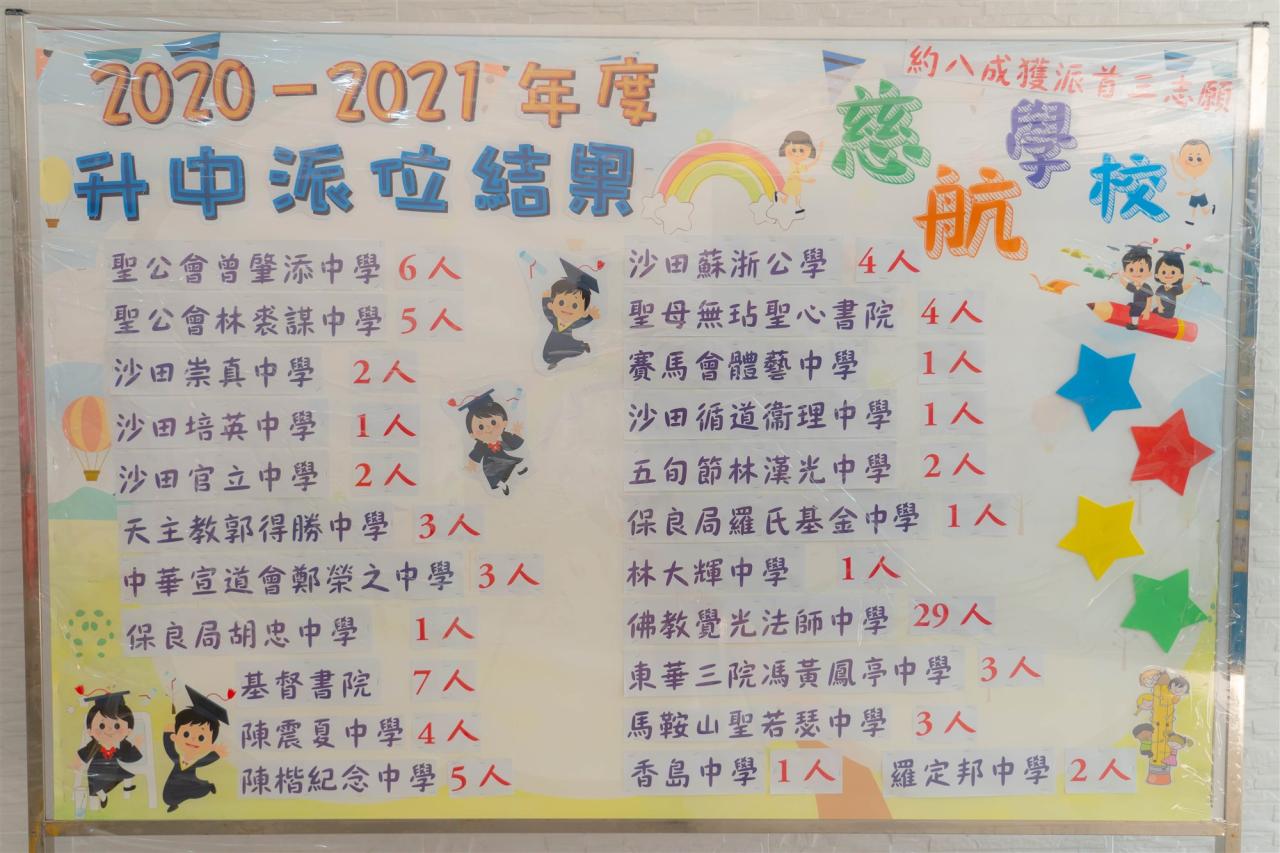 2020－2021年度
升中派位結果
約八成獲派首三志願
慈航學校
聖公會曾肇添中學 6人
聖公會林裘謀中學 5人
沙田崇真中學 2人
沙田培英中學 1人
沙田官立中學 2人
天主教郭得勝中學 3人
中華宣道會鄭榮之中學 3人
保良局胡忠中學 1人
基督書院 7人
陳震夏中學 4人
陳楷紀念中學 5人
沙田蘇浙公學 4人
聖母無玷聖心書院 4人
賽馬會體藝中學 1人
沙田循道衞理中學 1人
五旬節林漢光中學 2人
保良局羅氏基金中學 1人
林大輝中學 1人
佛教覺光法師中學 29人
東華三院馮黃鳳亭中學 3人
馬鞍山聖若瑟中學 3人
香島中學 1人 羅定邦中學 2人